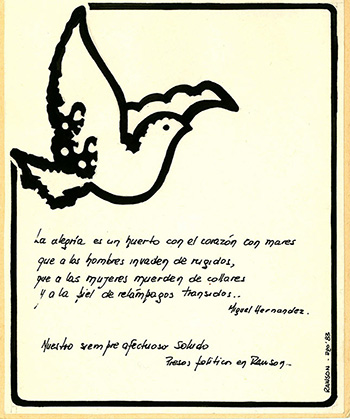 La alegría es un huerto con el corazón con mares
que a los hombres invaden de rugidos,
que a las mujeres muerden de collares
y a la piel de relámpagos transidos..
Miguel Hernandez.
Nuestro siempre afectuoso saludo
Presos políticos en Rawson..
RAWSON - DIC/ '83